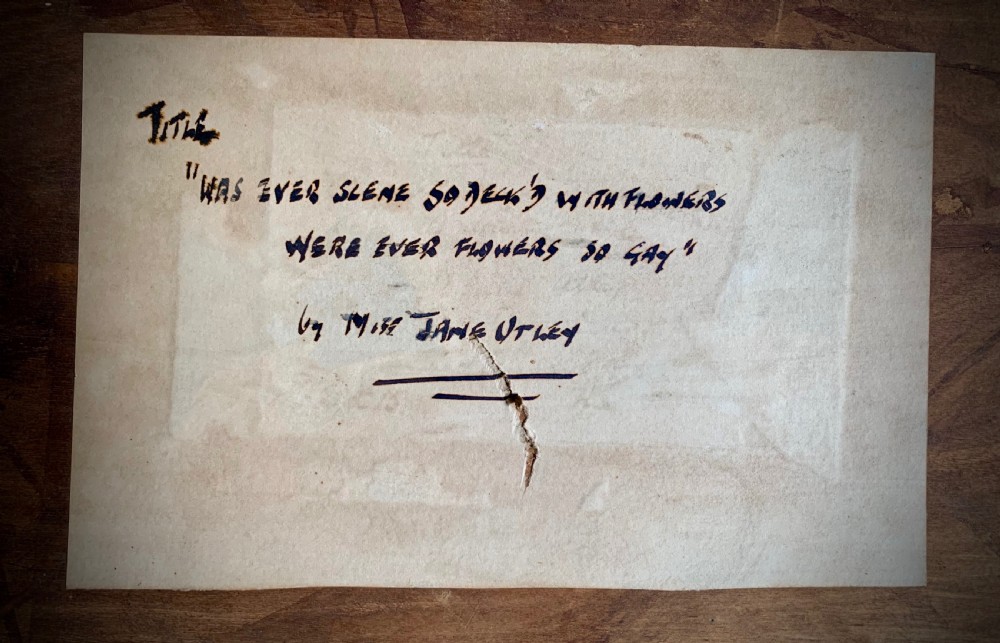 TITLE
"WAS EVER SCENE SO DECK'D WITH FLOWERS
WERE EVER FLOWERS SO GAY"
by MISS JANE UTLEY